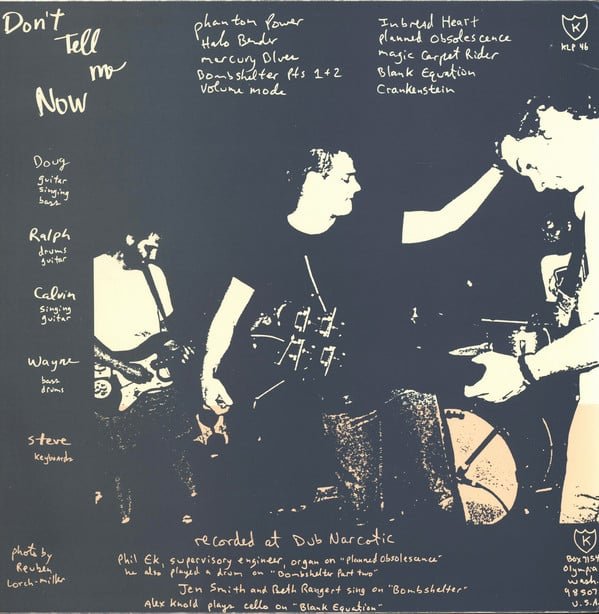 Don't
Tell
me
Now
phantom Power
Halo Bender
mercury Blues
Bombshelter Pts 1+2
Volume mode
Inbread Heart
planned Obsolescence
magic Carpet Rider
Blank Equation
Crankenstein
K
KLP 46
Doug
guitar
singing
bass
Ralph
drums
guitar
Calvin
singing
guitar
Wayne
bass
drums
Steve
keyboards
recorded at Dub Narcotic
Phil Ek, supervisory engineer, organ on "Planned Obsolescence"
he also played a drum on "Bombshelter Part two"
Jen Smith and Beth Rangert sing on "Bombshelter"
Alex Knold plays cello on "Blank Equation"
photo by
Reuben
Lorch-miller
K
Box 7154
Olympia
Wash.
98507
U.S.A